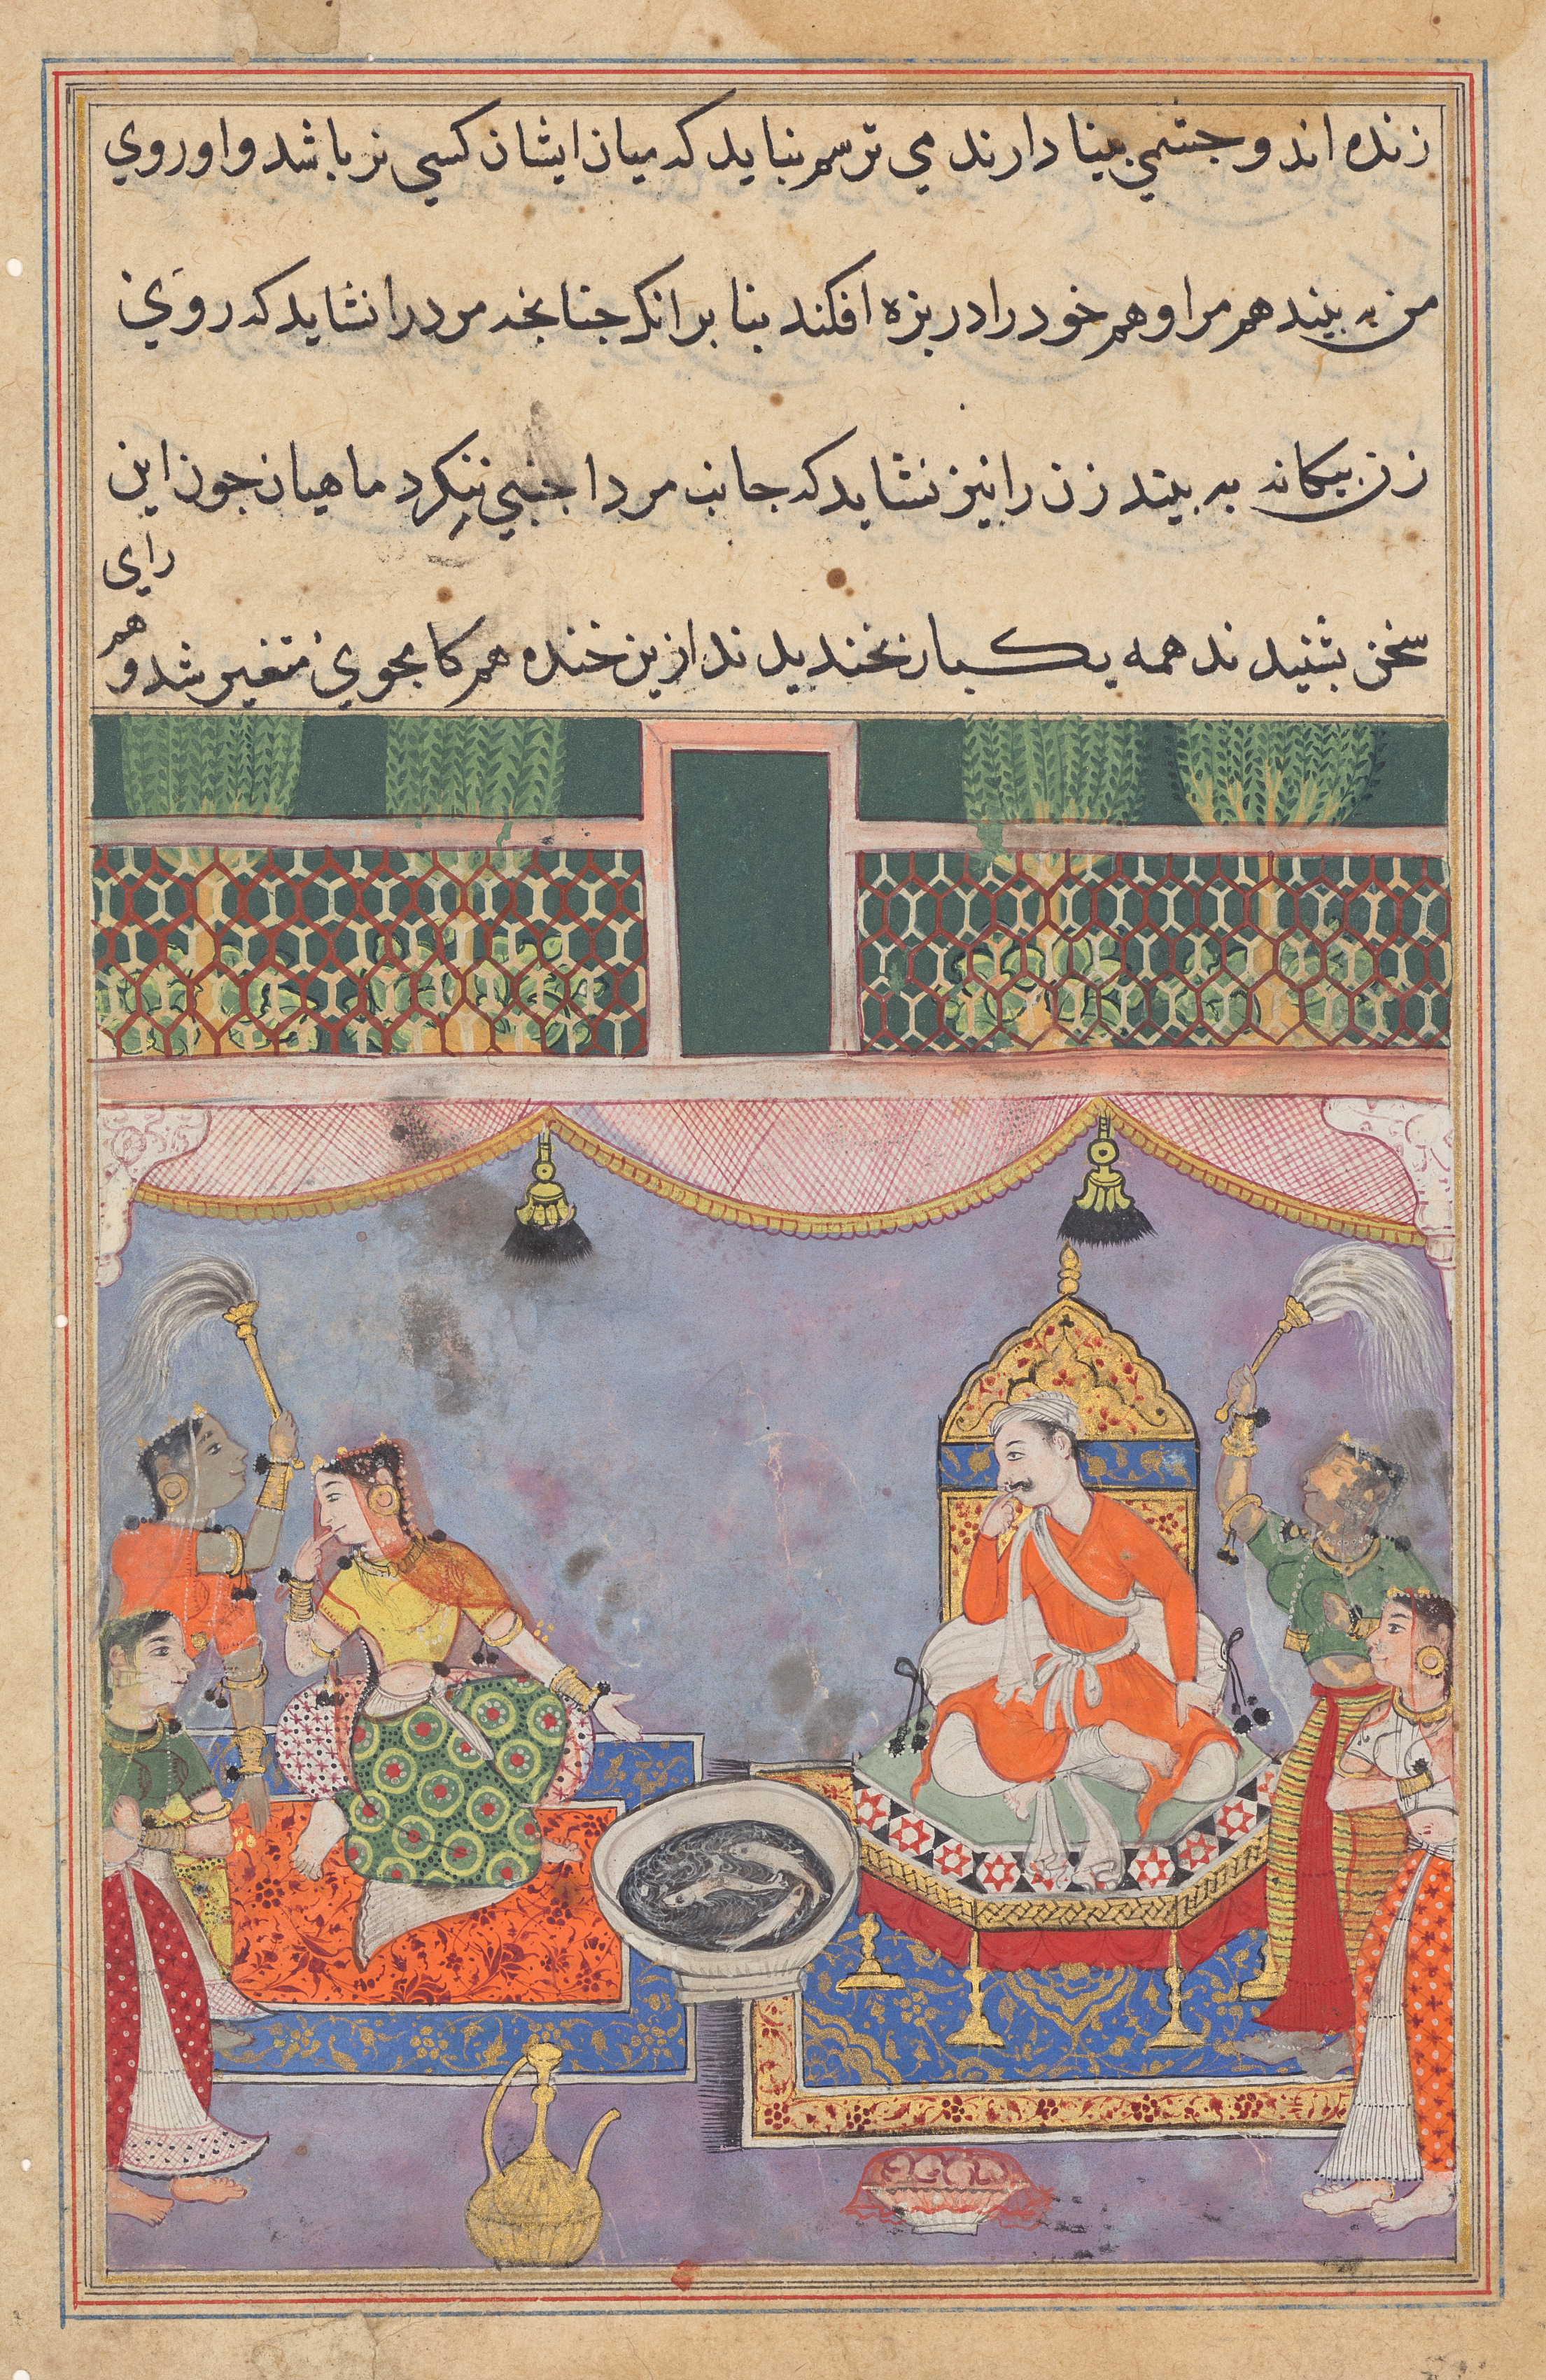 زنده اند و جشمي بينا دارند مي ترسم نبايد كه ميان ايشان كسي نر باشد و او روي
من به بيند هم مرا و هم خود را در بزه افكند بنا بر انك جنانجه مرد را نشايد كه روي
زن بيكانه به بيند زن را نيز نشايد كه جانب مرد اجنبي ننكرد ماهيان جون اين
سخن بشنيدند همه يكبار بخنديدند ازين خنده هم كامجوي متغير شد و هم
راي